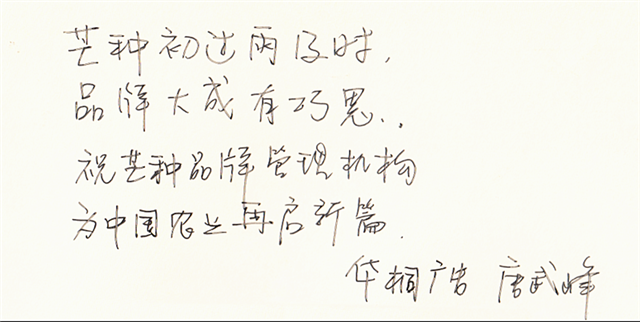 芒种初过雨及时,
品牌大成有巧思..
祝芒种品牌管理机构
为中国农业再启新篇.
华桐广告 唐武峰